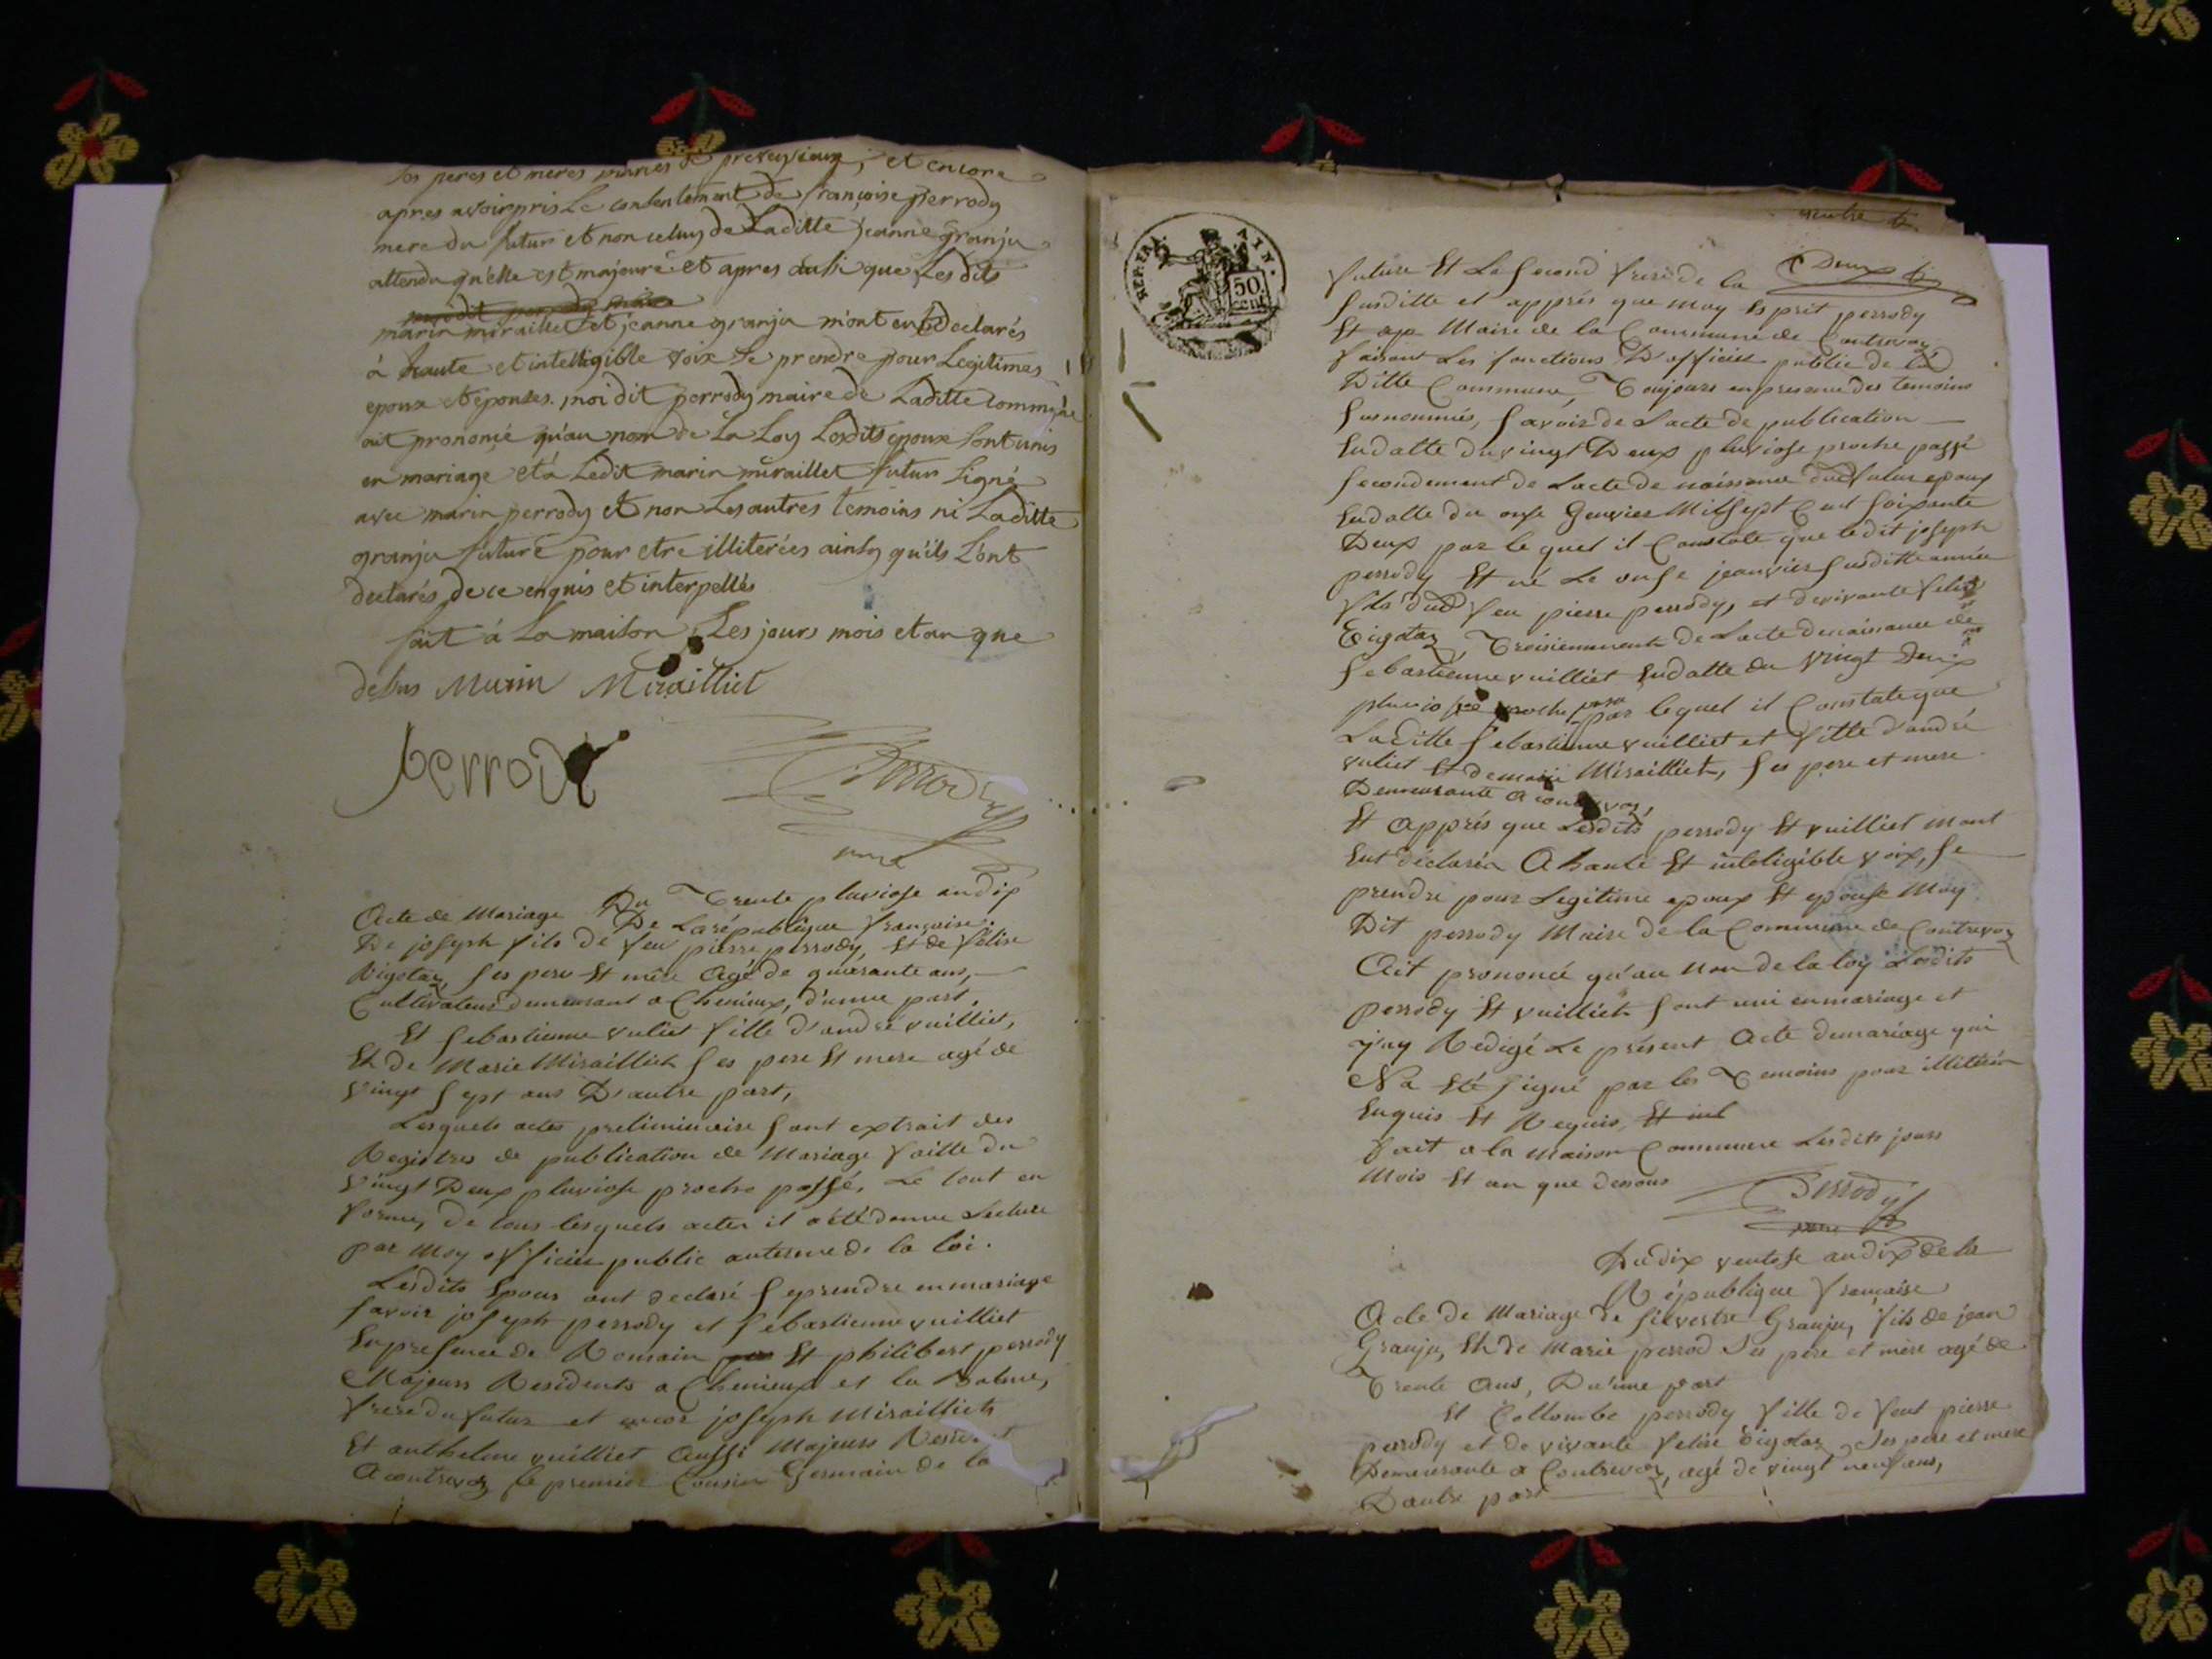 ses peres et meres maries de et encore
apres avoir pris Le consentement de françoise perrody
mere du futur et non celuy de Laditte jeanne granju
attendu qu'elle est majeure et apres aussi que Lesdits
marin miraillet et jeanne granju m'ont eu declarés
à haute et intelligible voix se prendre pour Legitimes
epoux et epouses. moi dit perrody maire de Laditte commune
ait prononcé qu'au nom de La Loy Lesdits epoux sont unis
en mariage et à Ledit marin miraillet futur signé
avec marin perrody et non Les autres temoins ni Laditte
granju future pour etre illiterées ainsy qu'ils L'ont
declarés de ce enquis et interpellés
fait à La maison Les jours mois et an que
desus Marin Mirailliet
perrody
Perrody
mre
Du Trente pluviose an dix
Acte de Mariage De La république française.
De joseph fils de feu pierre perrody, Et de félise
Rigotaz, ses pere Et mère Agé de quarante ans,
Cultivateur demeurant a Chemieux, d'unne part,
Et sebastienne vuliet fille d'andré vuilliet,
Et De Marie Mirailliet ses pere Et mere agé de
vingt sept ans D'autre part,
Lesquels actes preliminaire sont extrait des
Registres de publication de Mariage faitte du
vingt Deux pluviose proche passé, Le tout en
forme, de tous lesquels actes il a été donné Lecture
par Moy officier public au terme de la loi.
Lesdits Epoux ont declaré se prendre en mariage
savoir joseph perrody et sebastienne vuilliet
En presence de Romain Et philibert perrody
Majeurs Residents a Chemieux et la Balme,
frere du futur et encor joseph Mirailliet
Et anthelme vuilliet Aussi Majeurs Resident
A contrevoz le premier Cousin Germain de la
Deux
future Et Le second frere de la
susditte et apprés que moy Esprit perrody
Et Maire de la Commune de Contrevoz
faisant Les fonctions D'officier public de la
Ditte Commune, Toujours en presence des temoins
surnommés, savoir de L'acte de publication
En datte du vingt Deux pluviose proche passé
secondement de L'acte de naissance dud futur epoux
En datte du onse Genvier Mil sept Cent soixante
Deux par lequel il Constate que ledit joseph
perrody Et né Le onse jeanvier susditte année
fils dud feu pierre perrody, et de vivante felise
Rigotaz, Troisiemement de L'acte de naissance de
sebastienne vuilliet En datte du vingt Deux
pluviose proche passé par lequel il Constate que
Laditte sebastienne vuilliet et fille d'andré
vuliet Et de marie Mirailliet, ses pere et mere
Demeurante a contrevoz,
Et Apprés que Lesdits perrody Et vuilliet mont
Eut déclarés A haute Et inteligible voix, se
prendre pour Legitime epoux Et epouse Moy
Dit perrody Maire de la Commune de Contrevoz
Ait prononcé qu'au Non de la loy Lesdits
perrody Et vuilliet sont uni en mariage et
j'ay Redigé Le présent Acte de mariage qui
Na Eté signé par les Temoins pour illitéré
Enquis Et Requis, Et int
fait a la Maison Commune Lesdits jours
Mois Et an que dessus
Perrody
mre
Du dix ventose an dix de la
République française
Acte de Mariage De silvestre Granju, fils de jean
Granju, Et De Marie perrod ses pere et mère agé de
Trente Ans, D'une part
Et Collombe perrody fille de feut pierre
perrody et de vivante felise Rigotaz ses pere et mere
Demeurante a Contrevoz, agé de vingt neuf ans,
D'autre part
REP. FRA. AIN.
50
cent.